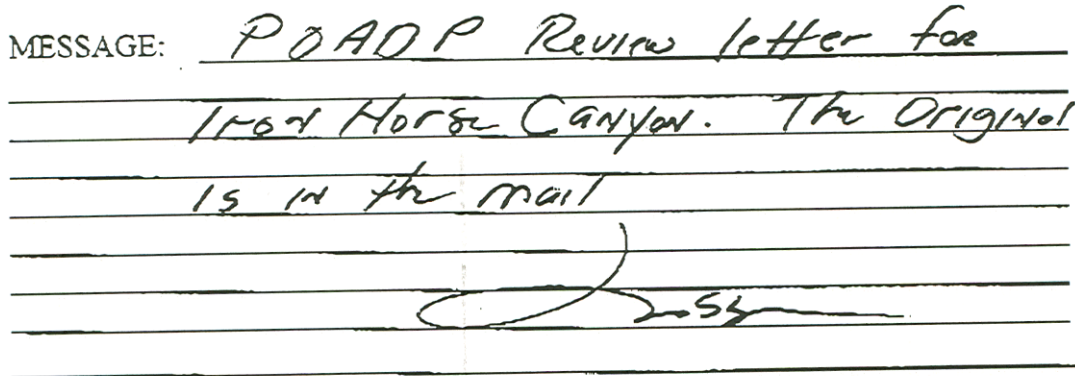 MESSAGE: POADP Review letter for
Iron Horse Canyon. The Original
is in the mail